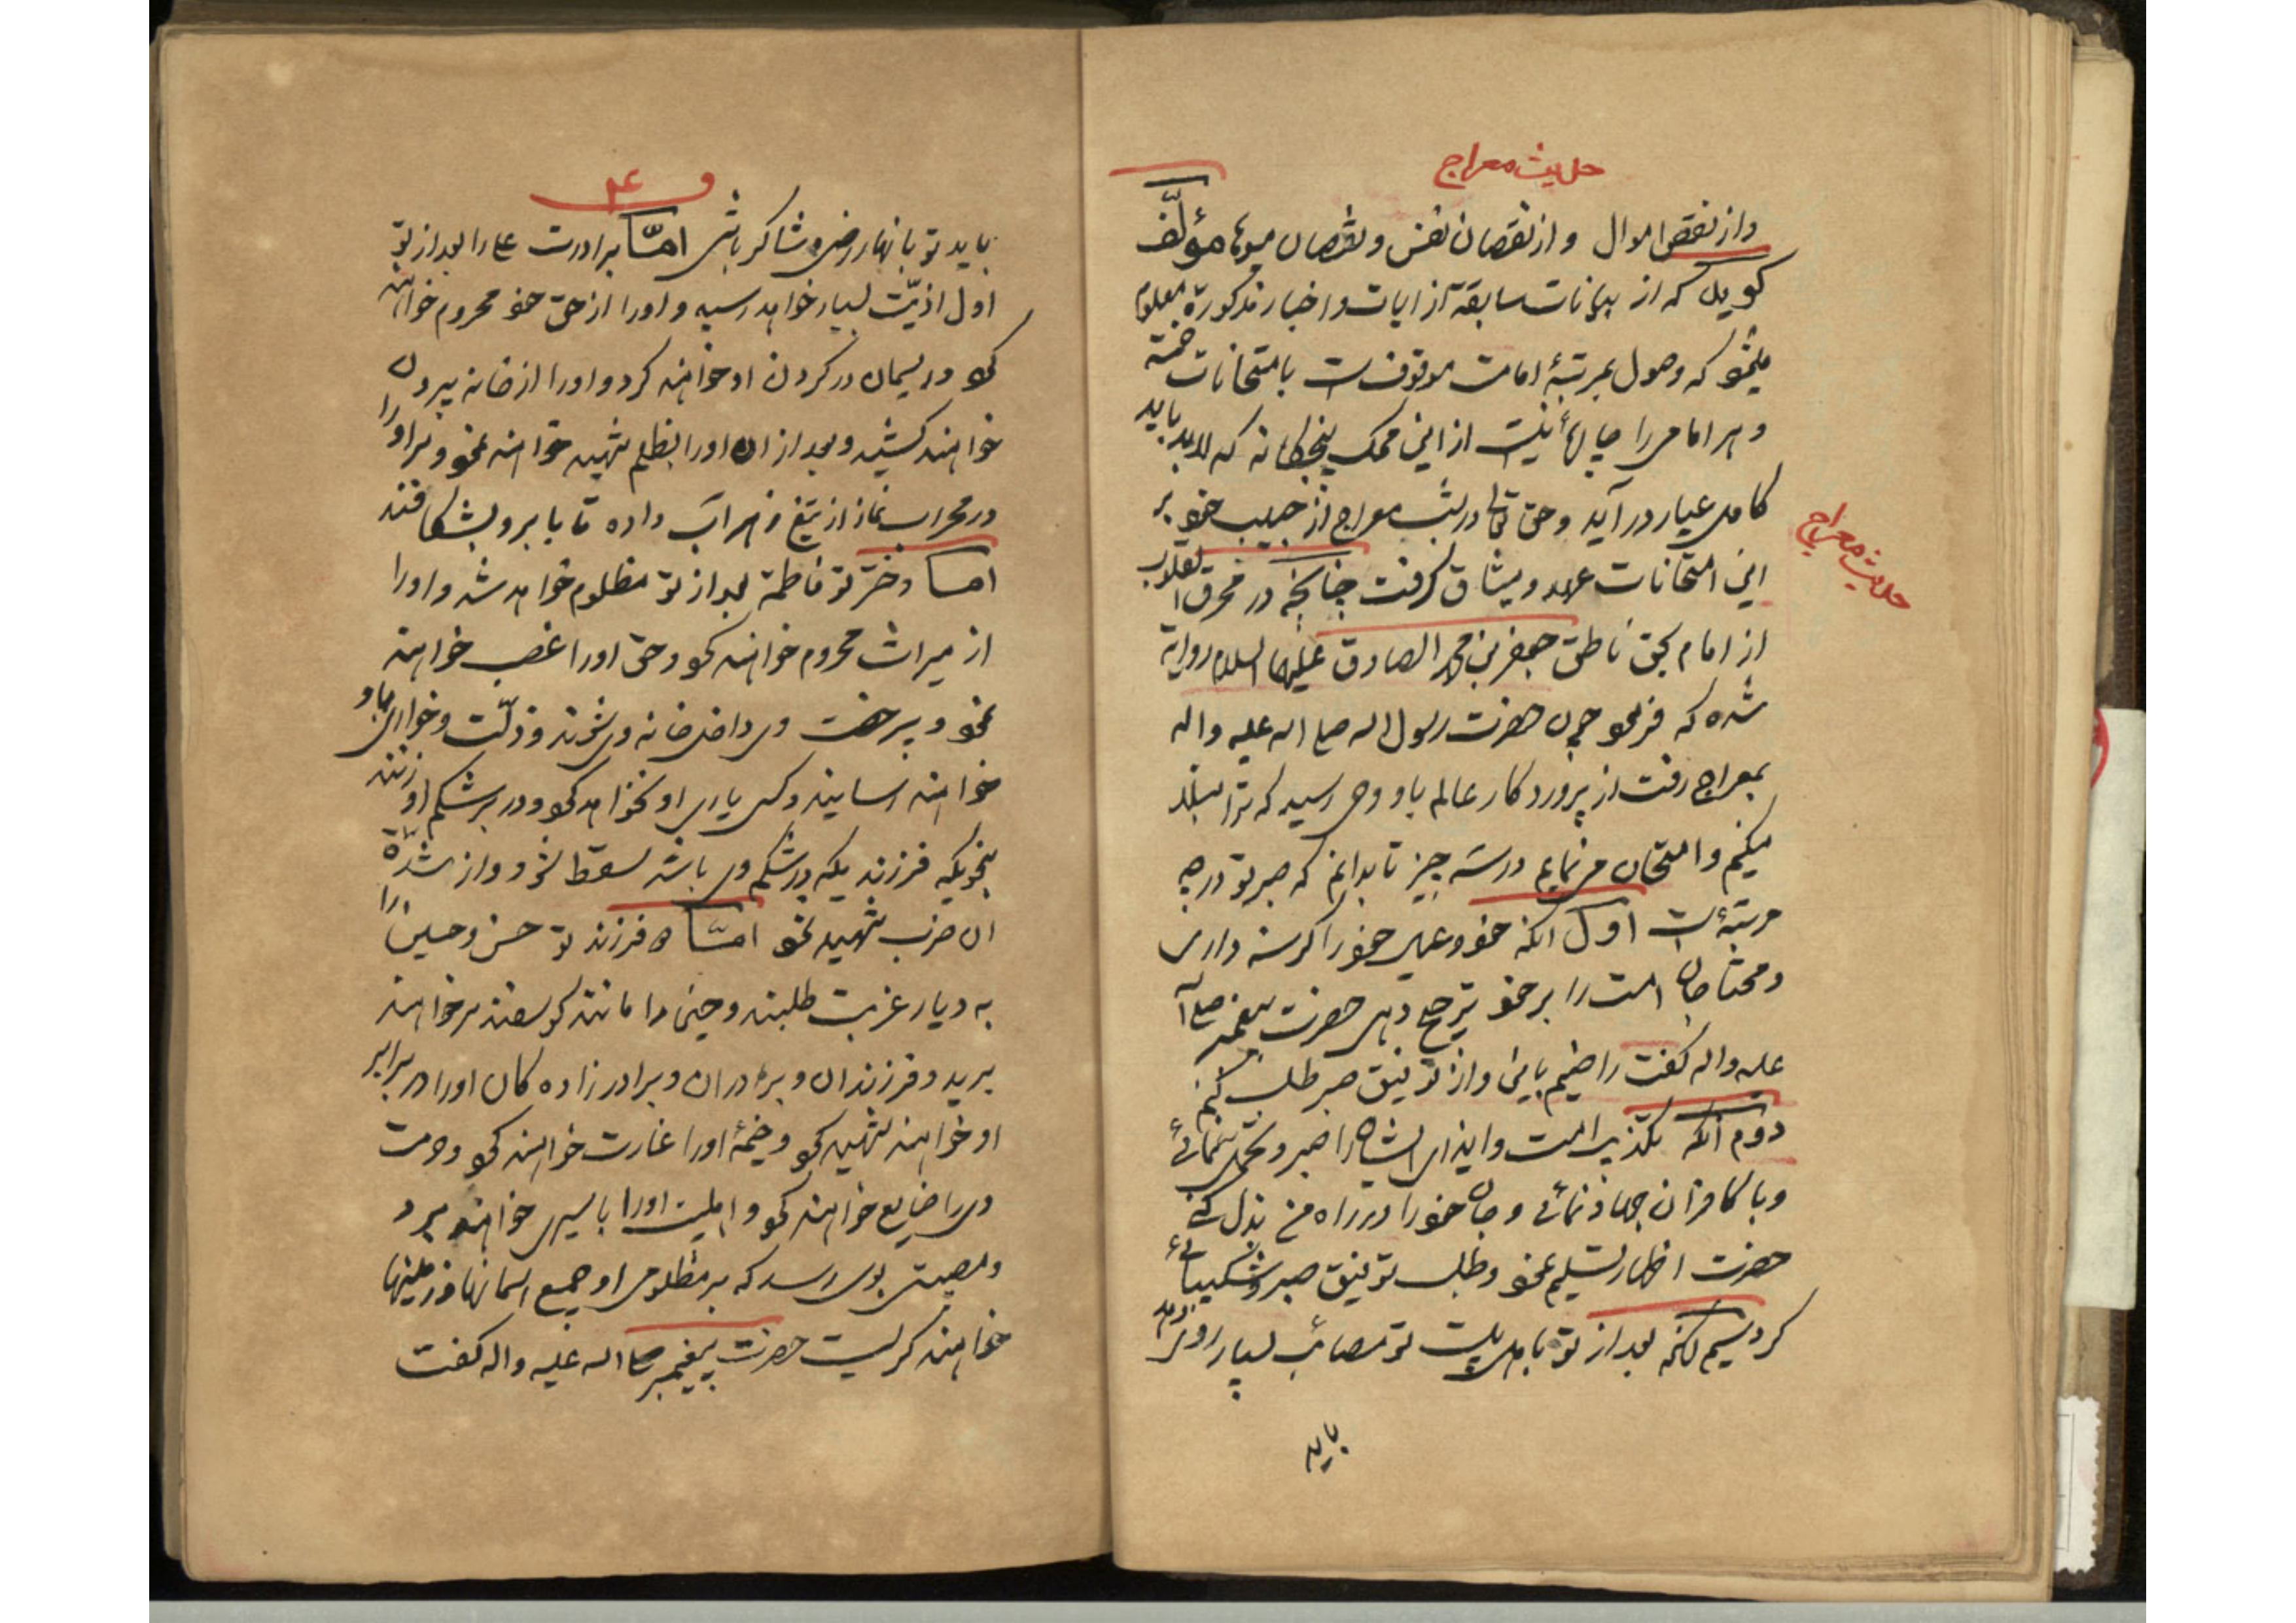 حدیث معراج
واز نقص اموال و از نقصان نفس و نقصان میوها مؤلّف
کوید که از بیانات سابقه از ایات و اخبار مذکورة معلوم
میشود که وصول بمرتبۀ امامت موقوفست بامتحانات خمسه
و هر امامی را چاره نیست از این محک پنجکانه که لابد باید
کامل عیار در آید و حق تعالی در شب معراج از حبیب خود بر
این امتحانات عهد و میثاق کرفت چنانچه در محرق القلوب
از امام بحق ناطق جعفر بن محمد الصادق علیهما السلام روایة
شده که فرمود چون حضرت رسول اله صلی اله علیه و اله
بمعراج رفت از پروردکار عالم باو وحی رسید که ترا مبتلا
میکنم و امتحان می نمایم در سه چیز تا بدانم که صبر تو در چه
مرتبۀ است اول انکه خود و عیال خود را کرسنه داری
و محتاجان امت را بر خود ترجیح دهی حضرت پیغمبر صلی ا
علیه و اله گفت راضیم باین و از تو توفیق صبر طلب کنم
دوم انکه بتکذیب امت و ایذای ایشان را صبر و تحمل نمائی
و با کافران جهاد نمائی و جان خود را در راه من بذل کنی
حضرت اظهار تسلیم نمود و طلب توفیق صبر و شکیبائی
کرد سیم انکه بعد از تو باهل بیت تو مصائب بسیار رو
باید
حدیث معراج
۴۰
باید تو بانها راضی و شاکر باشی امّا برادرت علی را بعد از تو
اول اذیّت بسیار خواهد رسید و اورا از حق خود محروم خواهند
کرد و ریسمان در کردن او خواهند کرد و اورا از خانه بیرون
خواهند کشید و بعد از ان اورا بظلم شهید خواهند نمود و سر اورا
در محراب نماز از تیغ زهر اب داده تا بابرو بشکافند
امّا دختر تو فاطمه بعد از تو مظلوم خواهد شد و اورا
از میراث محروم خواهند کرد و حق اورا غصب خواهند
نمود و بی رخصت وی داخل خانه وی شوند و ذلّت و خواری باو
خواهند رسانید و کسی یاری او نخواهد کرد و در بر شکم او زنند
بنحویکه فرزندیکه در شکم وی باشد سقط شود و از شدّة
ان ضرب شهید شود امّا دو فرزند تو حسن و حسین را
به دیار غربت طلبند و حسین را مانند کوسفند سر خواهند
برید و فرزندان و برادران و برادر زاده کان اورا در برابر
او خواهند شهید کرد و خیمۀ اورا غارت خواهند کرد و حرمت
وی را ضایع خواهند کرد و اهلبیت اورا باسیری خواهند برد
و مصیبتی بوی رسد که بر مظلومی او جمیع اسمانها و زمینها
خواهند کریست حضرت پیغمبر صلی اله علیه و اله گفت